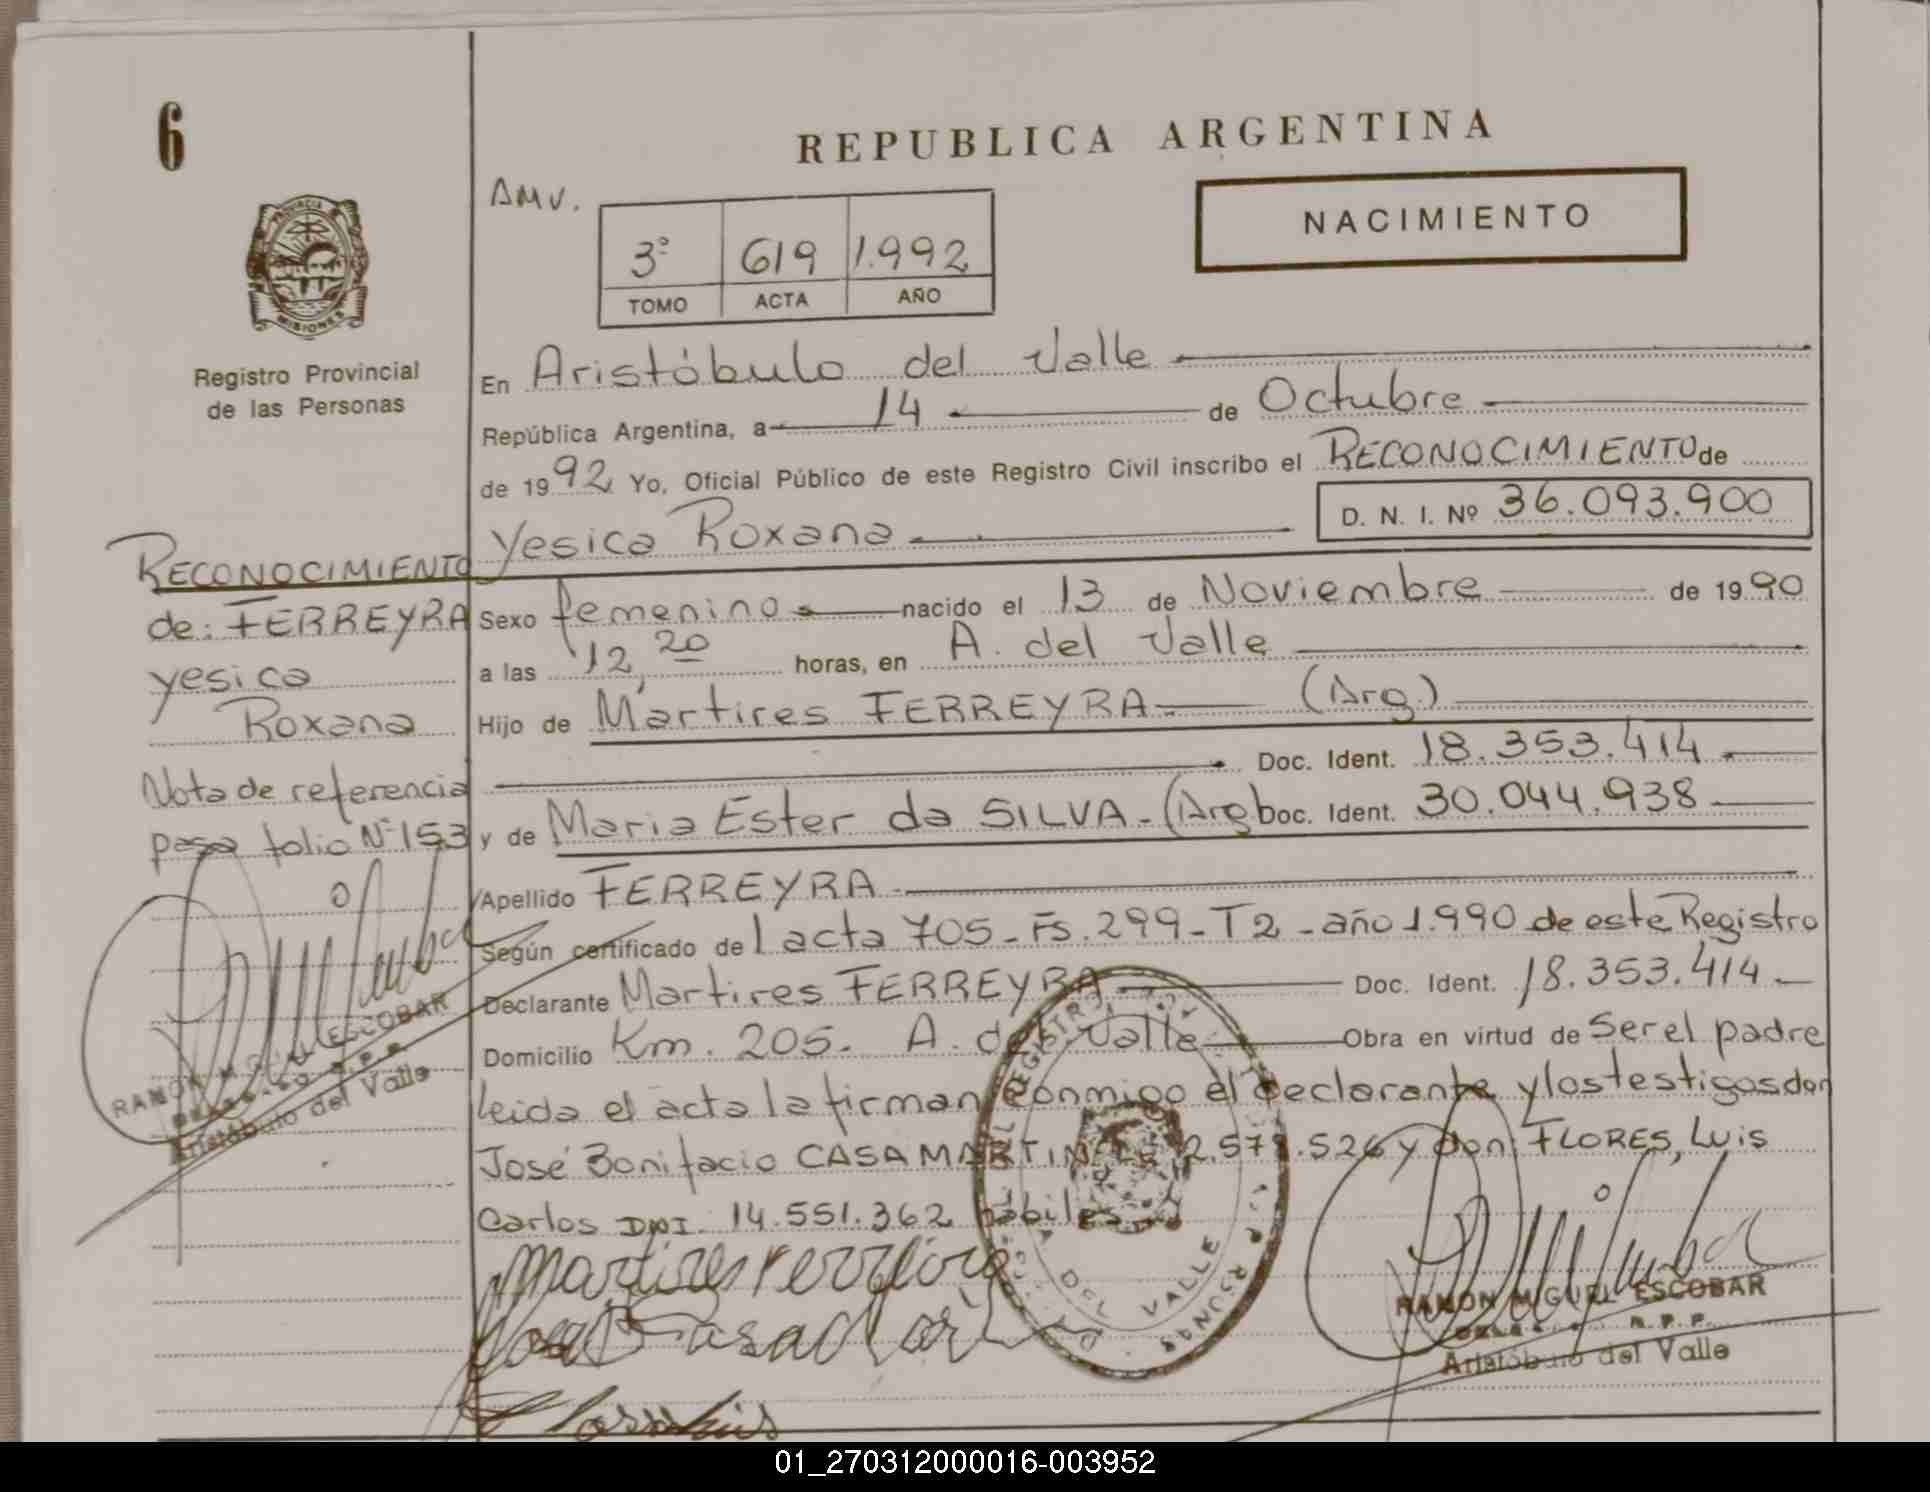 6
REPUBLICA ARGENTINA
AMV.
NACIMIENTO
3º 619 1.992
TOMO ACTA AÑO
PROVINCIA
MISIONES
Registro Provincial
de las Personas
En Aristóbulo del Valle
República Argentina, a 14 de Octubre
de 1992 Yo, Oficial Público de este Registro Civil inscribo el RECONOCIMIENTO de
Yesica Roxana D. N. I. Nº 36.093.900
Sexo femenino nacido el 13 de Noviembre de 1990
a las 12,20 horas, en A. del Valle
Hijo de Martires FERREYRA (Arg.)
Doc. Ident. 18.353.414
y de Maria Ester da SILVA. (Arg Doc. Ident. 30.044.938
Apellido FERREYRA
Según certificado del acta 705 - Fs. 299 - T2 - año 1.990 de este Registro
Declarante Martires FERREYRA Doc. Ident. 18.353.414
Domicilio Km. 205. A. del Valle Obra en virtud de Ser el padre
Leida el acta la firman conmigo el declarante y los testigos don
José Bonifacio CASAMARTIN y don: FLORES, Luis
Carlos DNI. 14.551.362 habiles
RECONOCIMIENTO
de: FERREYRA
Yesica
Roxana
Nota de referencia
pasa folio Nº 153
RAMON MIGUEL ESCOBAR
Aristóbulo del Valle
DEL VALLE
RAMON MIGUEL ESCOBAR
R.P.P.
Aristóbulo del Valle
01_270312000016-003952